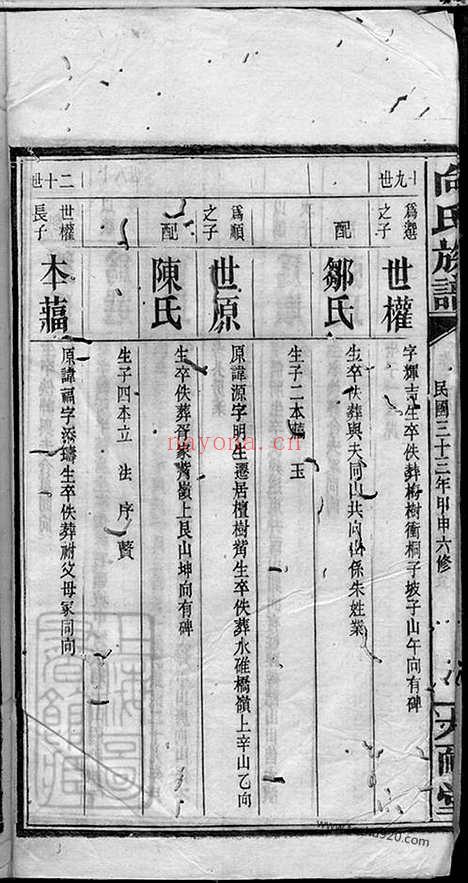 向氏族譜
民國三十三年甲申六修
十九世
爲選之子
世權
字輝吉生卒佚葬梅樹衝桐子坡子山午向有碑
配
鄒氏
生卒佚葬與夫同山共向山係朱姓業
生子二本藟 玉
爲順之子
世原
原諱源字明生遷居檀樹觜生卒佚葬水碓橋嶺上辛山乙向
配
陳氏
生卒佚葬胥家觜嶺上艮山坤向有碑
生子四本立 法 序 贊
二十世
世權長子
本藟
原諱福字添璹生卒佚葬祔父母冢同向
nayona.cn